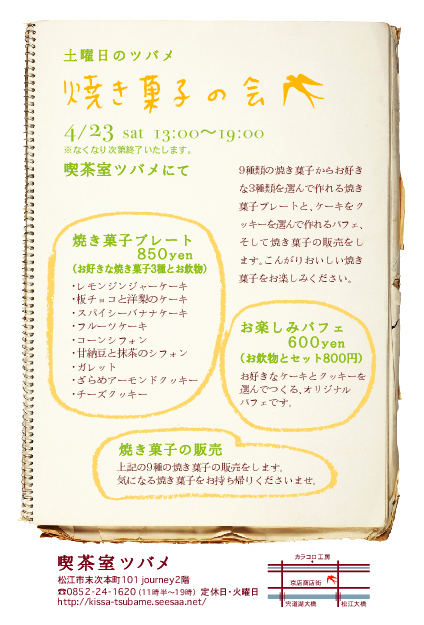 土曜日のツバメ
焼き菓子の会
4/23 sat 13:00〜19:00
※なくなり次第終了いたします。
喫茶室ツバメにて
9種類の焼き菓子からお好き
な3種類を選んで作れる焼き
菓子プレートと、ケーキをク
ッキーを選んで作れるパフェ、
そして焼き菓子の販売をし
ます。こんがりおいしい焼き
菓子をお楽しみください。
焼き菓子プレート
850yen
(お好きな焼き菓子3種とお飲物)
・レモンジンジャーケーキ
・板チョコと洋梨のケーキ
・スパイシーバナナケーキ
・フルーツケーキ
・コーンシフォン
・甘納豆と抹茶のシフォン
・ガレット
・ざらめアーモンドクッキー
・チーズクッキー
お楽しみパフェ
600yen
(お飲物とセット800円)
お好きなケーキとクッキーを
選んでつくる、オリジナル
パフェです。
焼き菓子の販売
上記の9種の焼き菓子の販売をします。
気になる焼き菓子をお持ち帰りくださいませ。
喫茶室ツバメ
松江市末次本町101 journey2階
☎0852-24-1620 (11時半〜19時) 定休日・火曜日
http://kissa-tsubame.seesaa.net/
カラコロ工房
京店商店街
宍道湖大橋
松江大橋